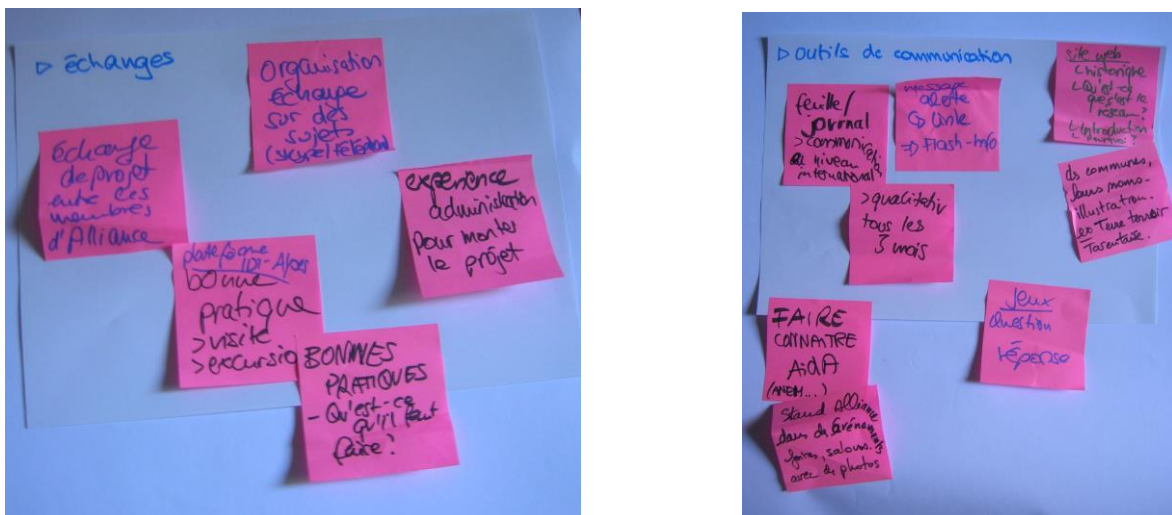 ▷ échanges
Organisation
échange
sur des
sujets
(skype/téléphone)
Echange
de projet
entre les
membres
d'Alliance
expérience
administration
pour monter
le projet
plateforme
IDT-Alpes
bonne
pratique
> visite
> excursion
BONNES
PRATIQUES
- Qu'est-ce
qu'il faut
faire?
▷ Outils de communication
feuille/
journal
> communiquer
au niveau
international
message
alerte
↳ Liste
⇒ Flash-Info
site web
↳ historique
↳ Qu'est-ce
que c'est le
réseau?
↳ Introduction
> qualitativ
tous les
3 mois
ds communes,
leurs noms-
illustration-
ex Terre terroir
Tarentaise.
FAIRE
CONNAITRE
AidA
(ANEM...)
Jeux
Question
réponse
Stand Alliance
dans des événements
foires, salons.
avec des photos